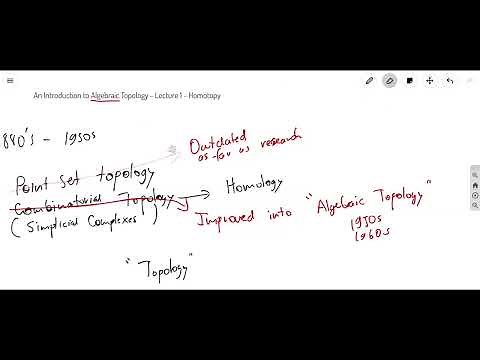 An Introduction to Algebraic Topology – Lecture 1 - Homotopy
880's - 1950s
Outdated
as far as research
Point Set topology
Combinatorial Topology → Homology
(Simplicial Complexes)
Improved into "Algebraic Topology"
1950s
1960s
"Topology"